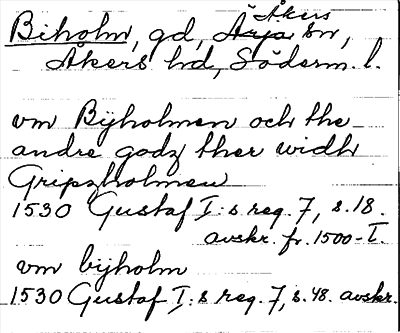 Biholm, gd, Åkers sn,
Åkers hd, Söderm. l.
vm Bijholmen och the
andre godz ther widh
Gripzholmen
1530 Gustaf I:s reg. 7, s. 18.
avskr. fr. 1500-t.
vm bijholm
1530 Gustaf I:s reg. 7, s. 48. avskr.